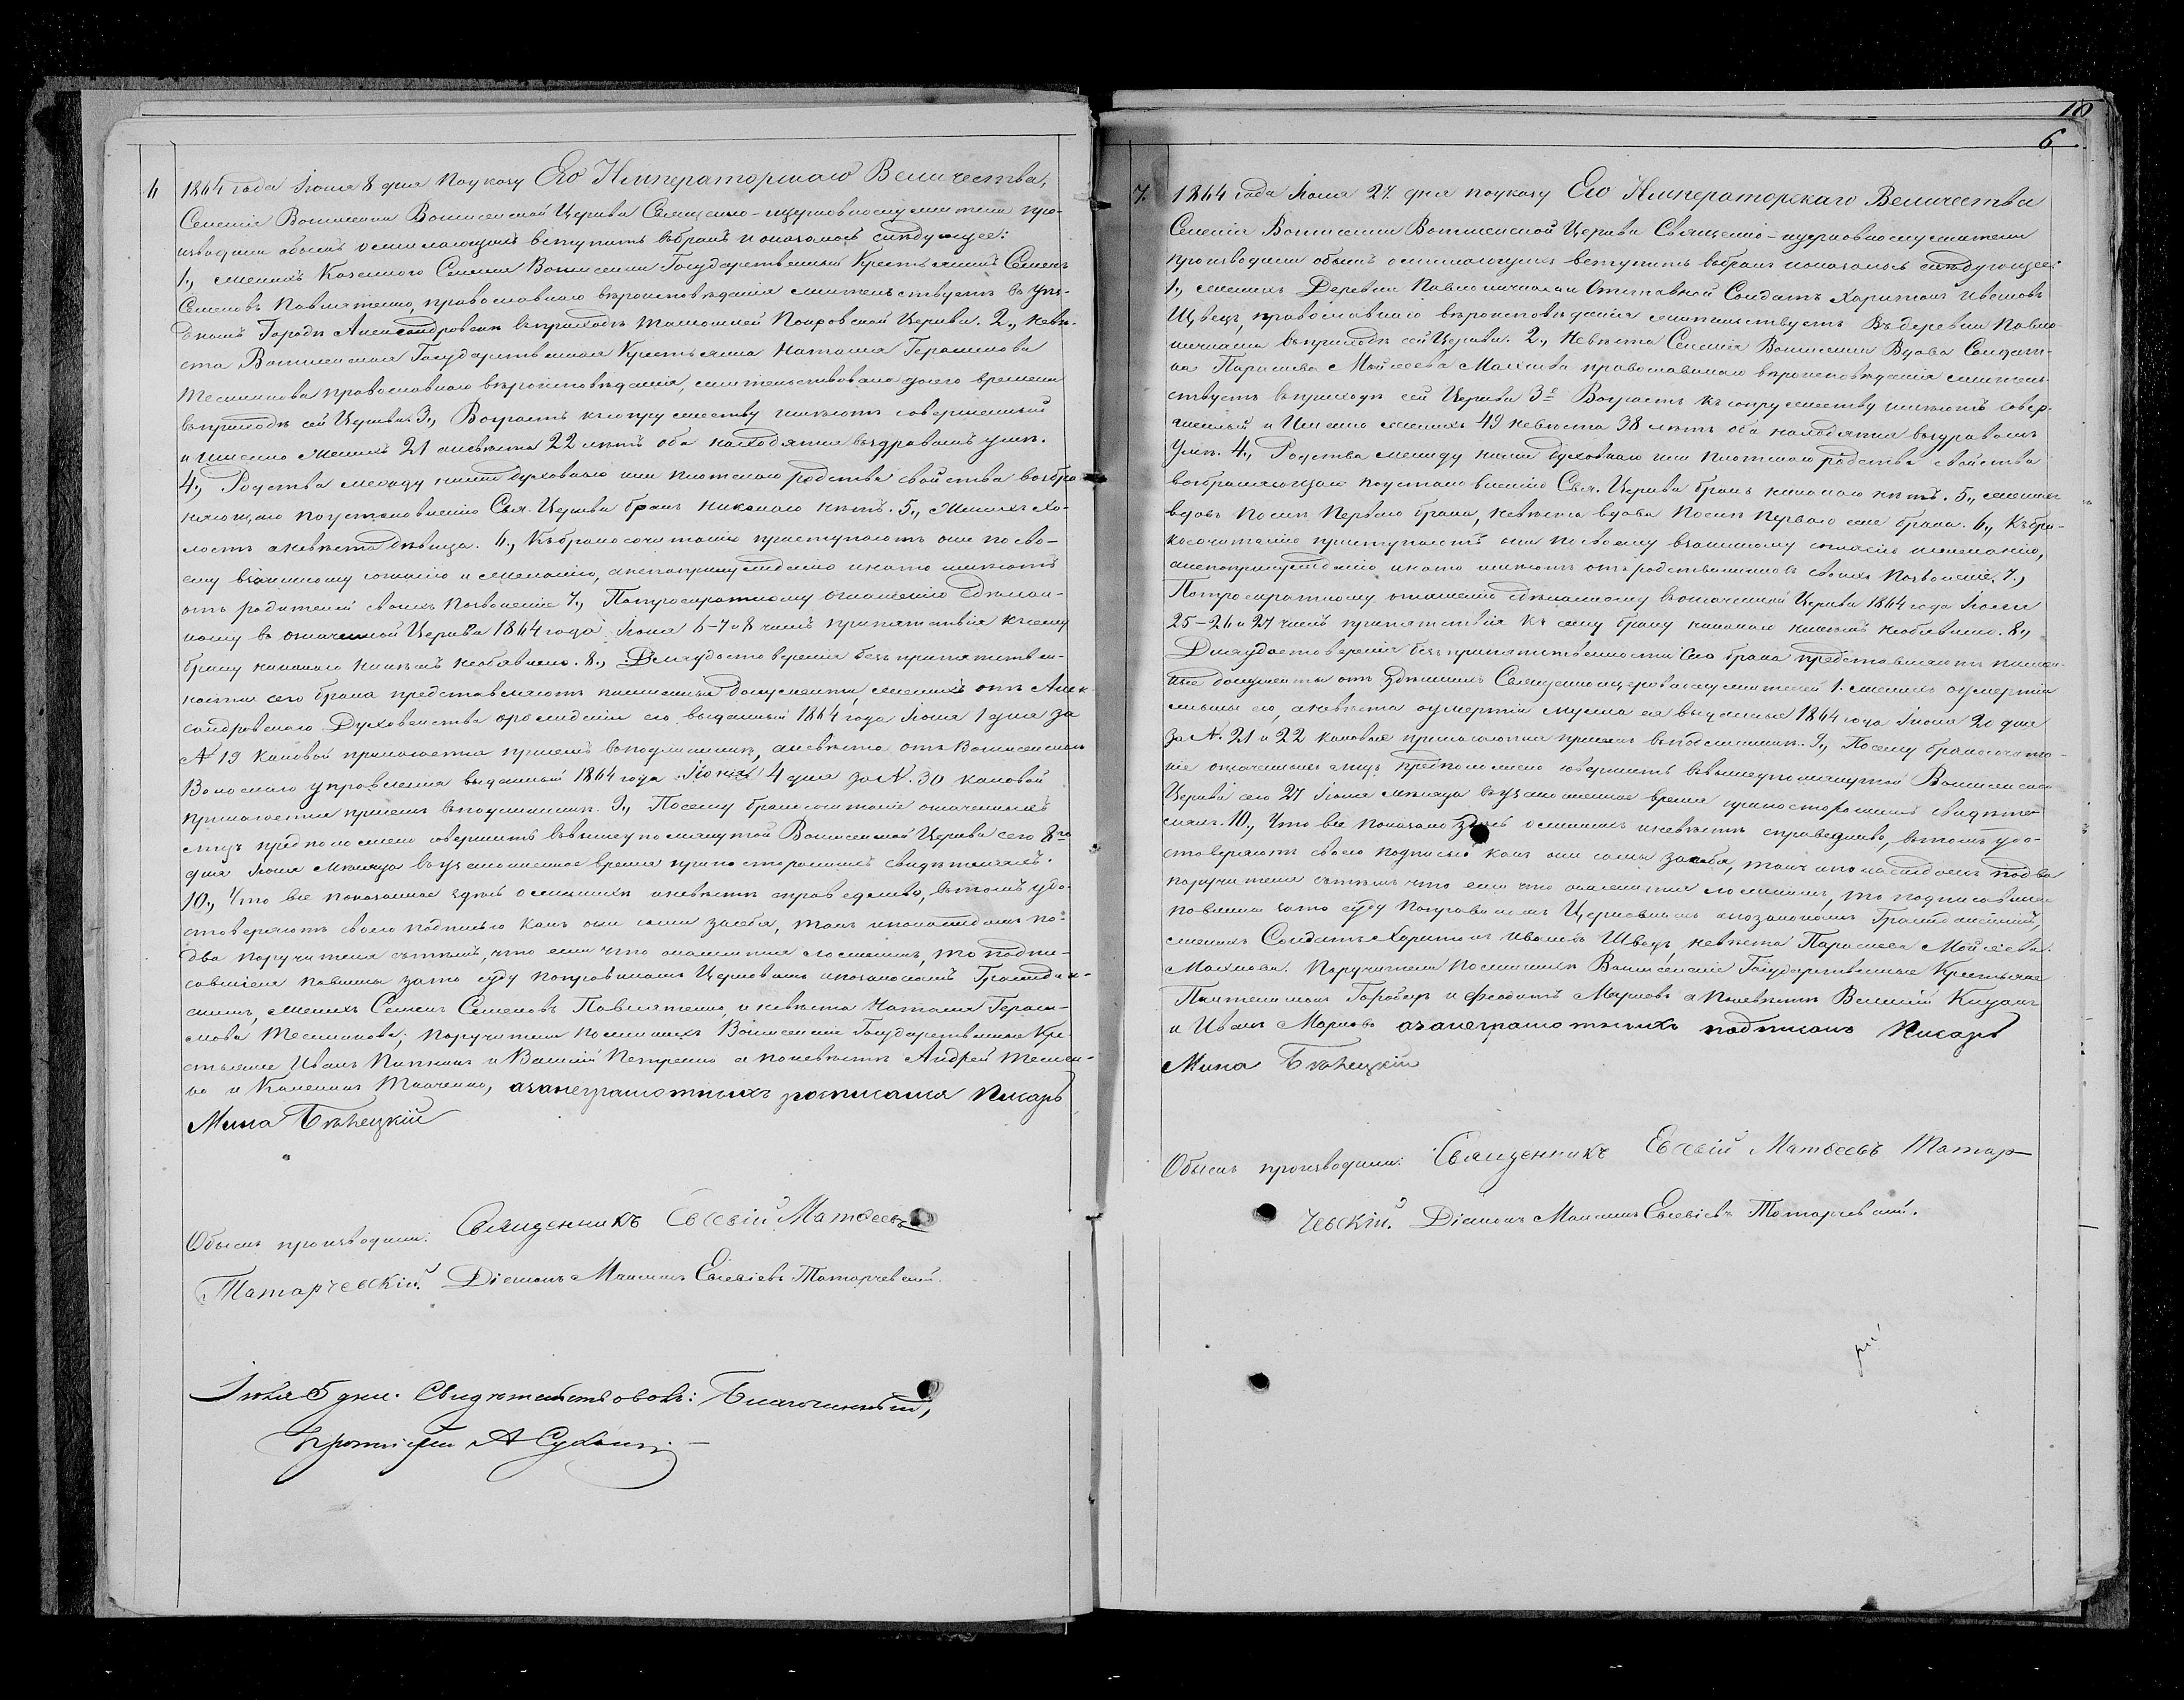 18
6
6 1864 года Іюня 8 дня По указу Его Императорскаго Величества,
Селенія Вознесенки Вознесенской Церкви Священно-церковнослужители про-
изводили обыскъ о желающихъ вступить въ бракъ и оказалось слѣдующее:
1., женихъ Казеннаго Селенія Вознесенки Государственный Крестьянинъ Семенъ
Семеновъ Павлятенко, православнаго вѣроисповѣданія жительствуетъ въ Уѣз-
дномъ Городѣ Александровскѣ въ приходѣ тамошней Покровской Церкви. 2., Невѣ-
ста Вознесенская Государственная Крестьянка Наталія Герасимова
православнаго вѣроисповѣданія, жительствовала до сего времени
въ приходѣ сей Церкви. 3., Возрастъ къ супружеству имѣютъ совершенный
и именно женихъ 21 а невѣста 22 лѣтъ оба находятся въ здравомъ умѣ.
4., Родства между ними духовнаго или плотскаго родства свойства возбра-
няющаго по установленію Свя. Церкви бракъ никакого нѣтъ. 5., Женихъ хо-
лостъ а невѣста дѣвица. 6., Къ бракосочетанію приступаютъ они по сво-
ему взаимному согласію и желанію, а не по принужденію и на то имѣютъ
отъ родителей своихъ позволеніе 7., По троекратному оглашенію сдѣлан-
ному въ означенной Церкви 1864 года Іюня 6-7 и 8 чиселъ препятствія къ сему
браку никакого никѣмъ не объявлено. 8., Для удостовѣренія безпрепятствен-
ности сего брака представляютъ письменныя документы, женихъ отъ Алек-
сандровскаго Духовенства о рожденіи его выданный 1864 года Іюня 1 дня за
№ 19 каковой прилагается при семъ въ подлинникѣ, а невѣста отъ Вознесенскаго
Волоснаго управленія выданный 1864 года Іюня 4 дня за №. 30 каковой
прилагается при семъ въ подлинникѣ. 9., Посему бракосочетаніе означенныхъ
лицъ предположено совершить въ вышеупомянутой Вознесенской Церкви сего 8го
дня Іюня мѣсяца въ узаконенное время при постороннихъ свидѣтеляхъ.
10., Что все показанное здѣсь о женихѣ и невѣстѣ справедливо, въ томъ удо-
стовѣряютъ своею подписью какъ они сами за себя, такъ и по каждомъ по
два поручителя съ тѣмъ, что если что окажется ложнымъ, то подпи-
савшіеся повинны за то суду по правиламъ Церковнымъ и по законамъ Граждан-
скимъ, Женихъ Семенъ Семеновъ Павлятенко, и невѣста Наталія Гераси-
мова поручители по женихѣ Вознесенскіе Государственные Кре-
стьяне Иванъ и Василій Петренко а по невѣстѣ Андрей
и Ткаченко, а за неграмотныхъ росписался Писарь
Мина Бѣнецкій
Обыскъ производили: Священникъ Евсевій Матѳеевъ
Татарчевскій. Діаконъ Максимъ Евсевіевъ Татарчевскій.
Іюля 5 дня. Свидѣтельствовалъ: Благочинный,
Протоіерей А
7. 1864 года Іюня 27. дня по указу Его Императорскаго Величества
Селенія Вознесенки Вознесенской Церкви Священно-церковнослужители
производили обыскъ о желающихъ вступить въ бракъ и оказалось слѣдующее:
1., женихъ Деревни Павлокичкаса Отставной Солдатъ Харитонъ Ивановъ
Швецъ, православнаго вѣроисповѣданія жительствуетъ въ деревни Павло-
кичкаса въ приходѣ сей Церкви. 2., Невѣста Селенія Вознесенки Вдова Солдат-
ка Параскева Мойсеева Махнова православнаго вѣроисповѣданія житель-
ствуетъ въ приходѣ сей Церкви 3е Возрастъ къ супружеству имѣютъ совер-
шенный и Именно женихъ 49 невѣста 38 лѣтъ оба находятся въ здравомъ
Умѣ. 4., Родства между ними духовнаго или плотскаго родства свойства
возбраняющаго по установленію Свя. Церкви бракъ никакого нѣтъ. 5., женихъ
вдовъ послѣ перваго брака, невѣста вдова послѣ перваго же брака. 6., Къ бра-
косочетанію приступаютъ они по своему взаимному согласію и желанію,
а не по принужденію и на то имѣютъ отъ родственниковъ своихъ позволеніе. 7.,
По троекратному оглашенію сдѣланному въ означенной Церкви 1864 года Іюня
25-26 и 27 чиселъ препятствія къ сему браку никакого никѣмъ не объявлено. 8.,
Для удостовѣренія безпрепятственности сего брака представляютъ письмен-
ные документы отъ здѣшнихъ Священноцерковнослужителей 1. женихъ о умертвіи
жены его, а невѣста о умертвіи мужа ея выданные 1864 года Іюня 20 дня
за №. 21 и 22 каковые прилагаются при семъ въ подлинникѣ. 9., Посему бракосочета-
ніе означенныхъ лицъ предположено совершить въ вышеупомянутой Вознесенской
Церкви сего 27 Іюня мѣсяца въ узаконенное время при постороннихъ свидѣте-
ляхъ. 10., Что все показано здѣсь о женихѣ и невѣстѣ справедливо, въ томъ удо-
стовѣряютъ своею подписью какъ они сами за себя, такъ и по каждомъ по два
поручителя съ тѣмъ что если что окажется ложнымъ, то подписавшіеся
повинны за то суду по правиламъ Церковнымъ и по законамъ Гражданскимъ,
женихъ Солдатъ Харитонъ Ивановъ Швецъ, невѣста Параскева Мойсеева
Махнова. Поручители по женихѣ Вознесенскіе Государственные Крестьяне
Пантелеимонъ Горобецъ и Феодотъ а по невѣстѣ Василій
и Иванъ а за неграмотныхъ подписалъ Писарь
Мина Бѣнецкій
Обыскъ производили: Священникъ Евсевій Матѳеевъ Татар-
чевскій. Діаконъ Максимъ Евсевіевъ Татарчевскій.